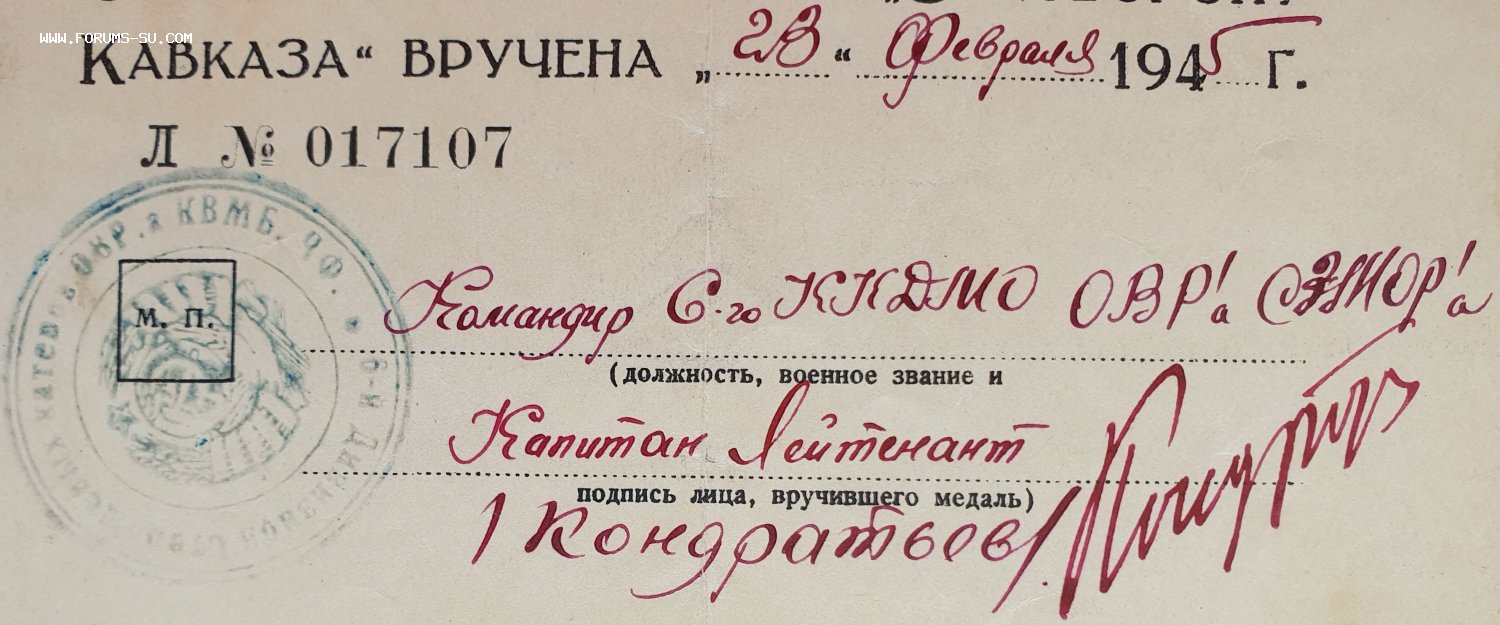 WWW.FORUMS-SU.COM
КАВКАЗА“ ВРУЧЕНА „23“ Февраля 1945 г.
Л № 017107
КВМБ. ЧФ.
М. П.
Командир 6-го ККДМО ОВР'а
(должность, военное звание и
Капитан Лейтенант
подпись лица, вручившего медаль)
/Кондратьев/